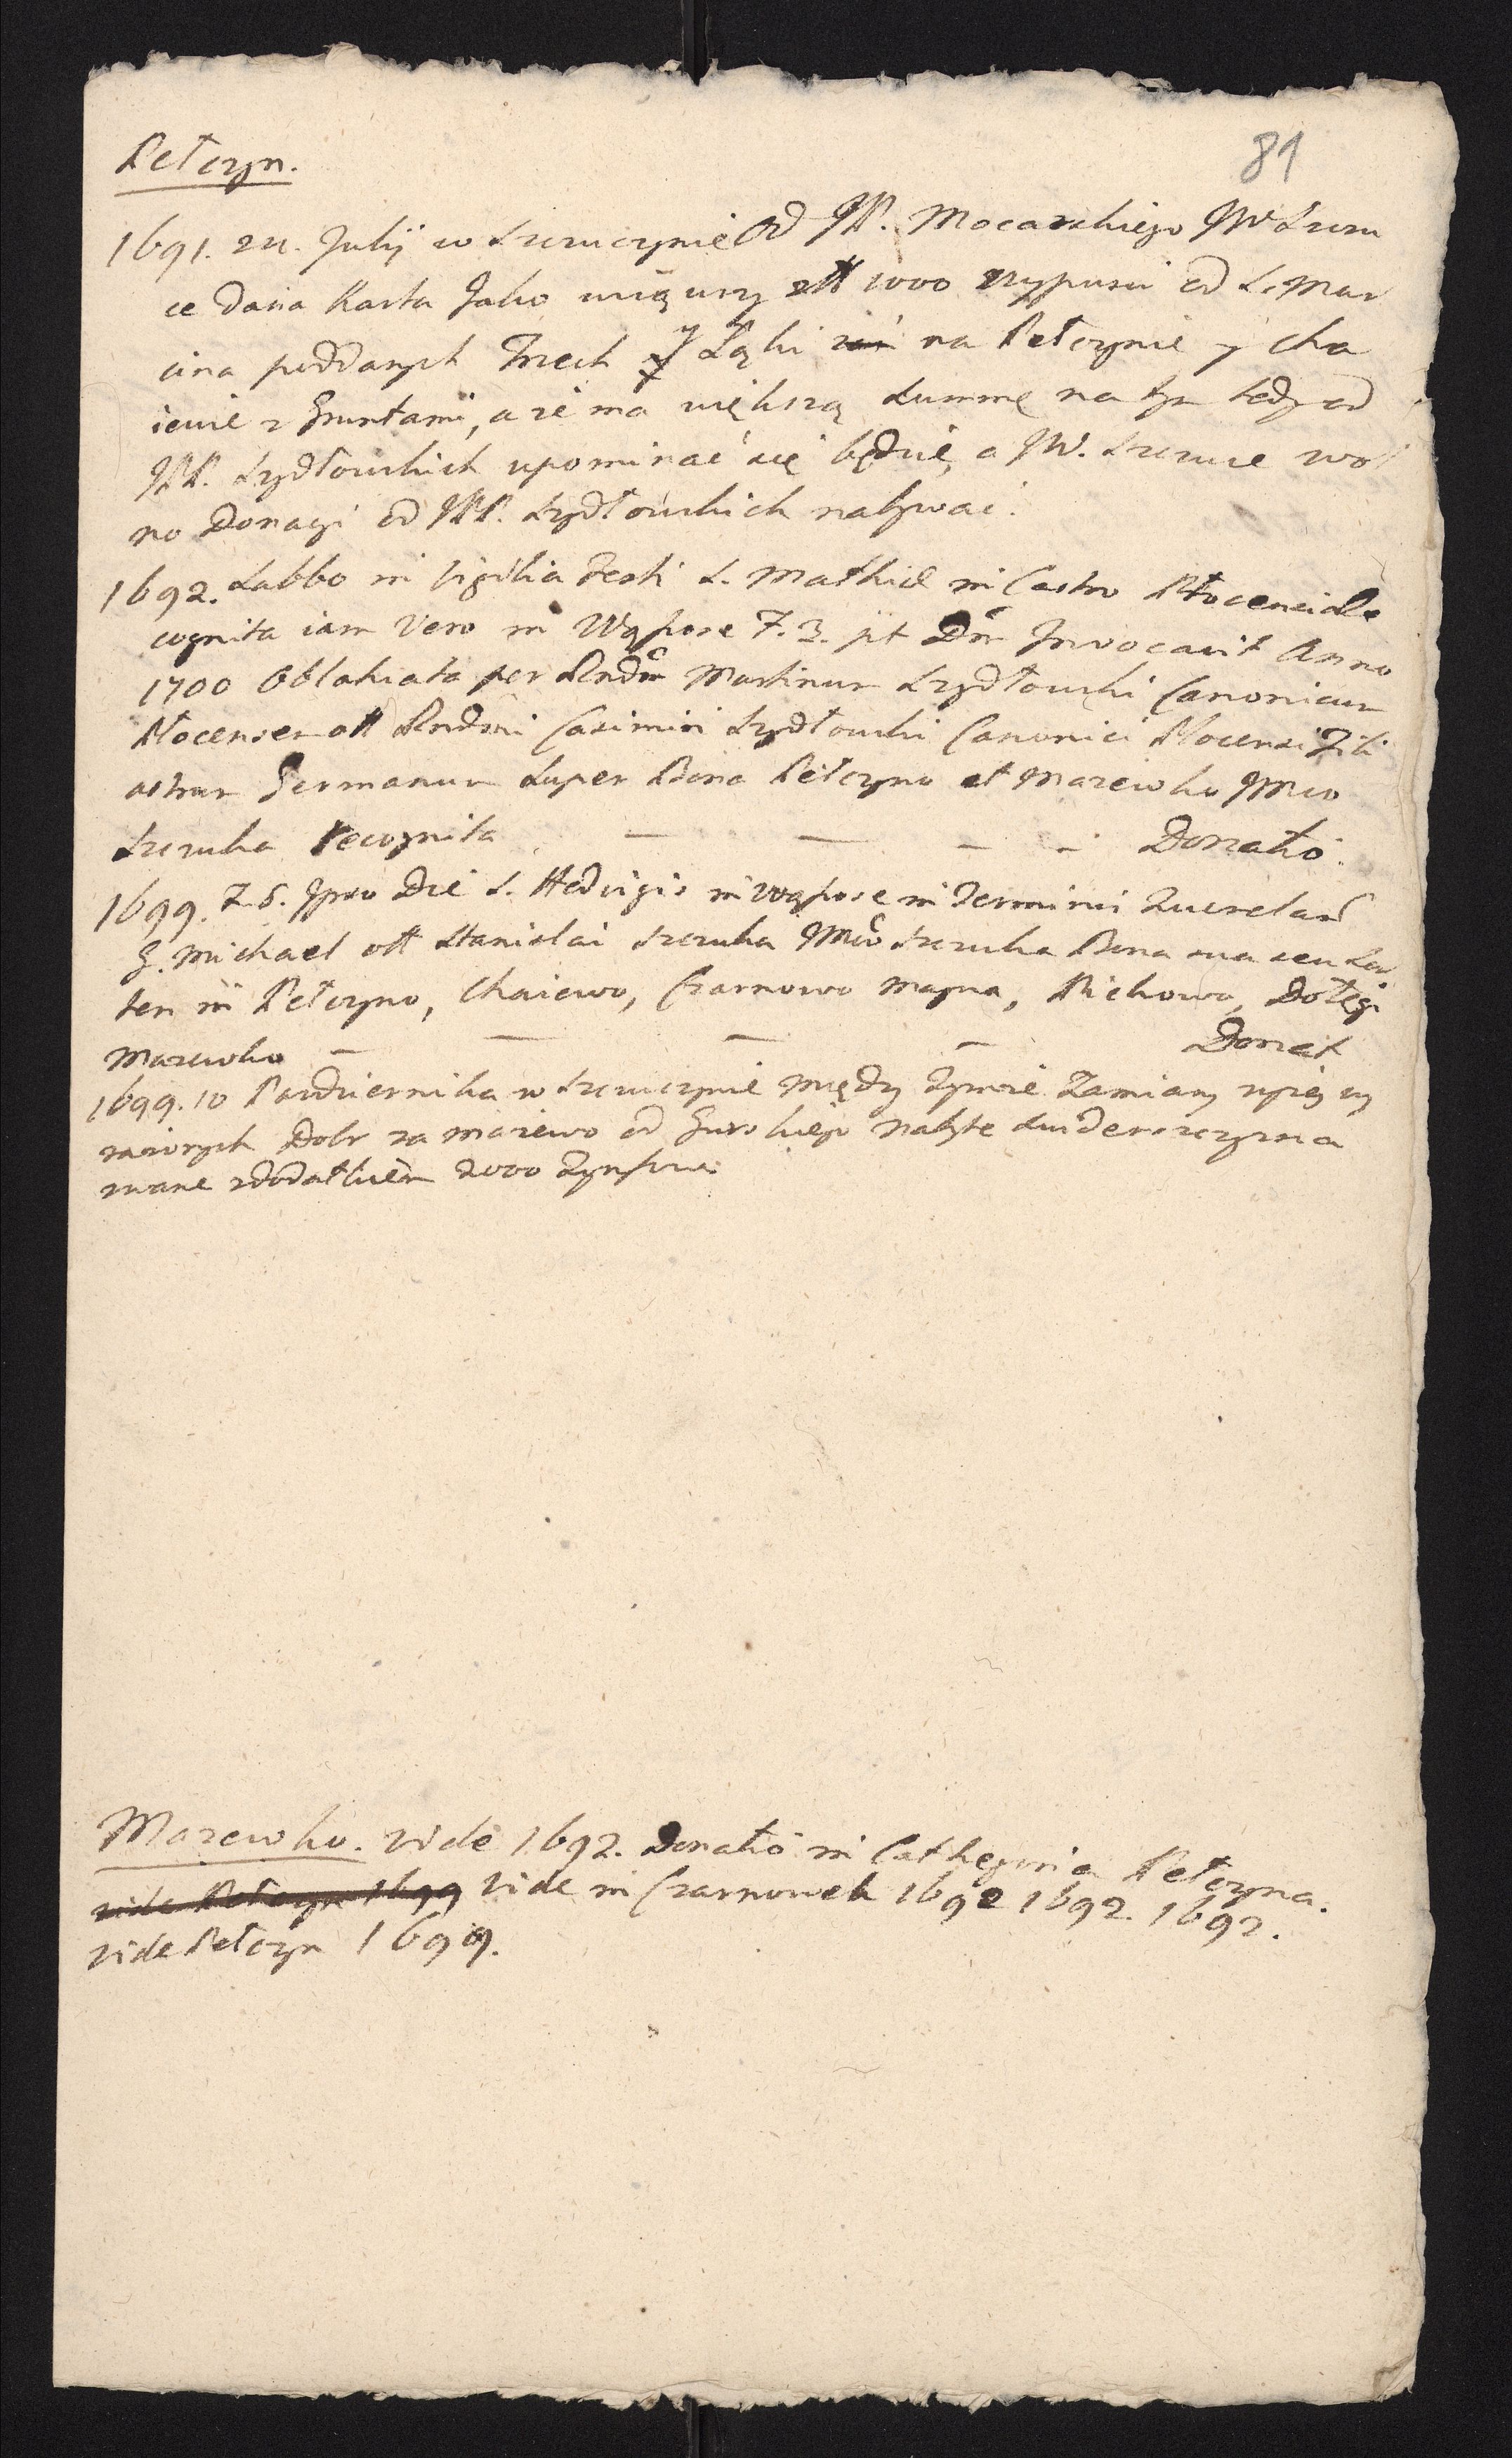 Pełczyn.
81
1691. 24. Julij w Szczuczynie Od JP. Mocarskiego JW Szczu
ce dana Karta Jako wziąwszy zł 1000 wypuści od S. Mar
cina poddanych Trzech y Łąki na Pełczynie y Cha
iewie z Gruntami, a że ma większą Summę na tym tedy od
JPP. Szydłowskich upominać się będzie, a JW. Szczuce wol
no Donacyi od JPP. Szydłowskich nabywać.
1692. Sabbo in Vigilia Festi S. Mathiæ in Castro Plocensi Re
cognita iam Vero in Wąsosze F. 3. pt Dm Invocavit Anno
1700 Oblatiata per Rndm Martinum Szydłowski Canonicum
Plocensem olt Rndmi Casimiri Szydłowski Canonici Plocensi
Germanum Super Bona Pełczyno et Mazewko JMco
Szczuka recognita — — — - Donatio.
1699. F. 6. Ipso Die S. Hedvigis in Wąsosze in Terminis Querelar
G. Michael olt Stanislai Szczuka JMco Szczuka Bona sua seu Sor
tem in Pełczyno, Chaiewo, Czarnowo Magna, Bichowo, Dołęgi
Mazewko — — — — Donat
1699. 10 Pazdziernika w Szczuczynie Między Tymże Zamiany
Dobr za Mazewo od Gurskiego nabyte
zwane z dodatkiem 2000 Tynfow.
Mazewko. Vide 1692. Donatio in Cathegoria Pełczyna.
vide Pełczyn 1699 Vide in Czarnowek 1692 1692. 1692.
Vide Pełczyn 1699.